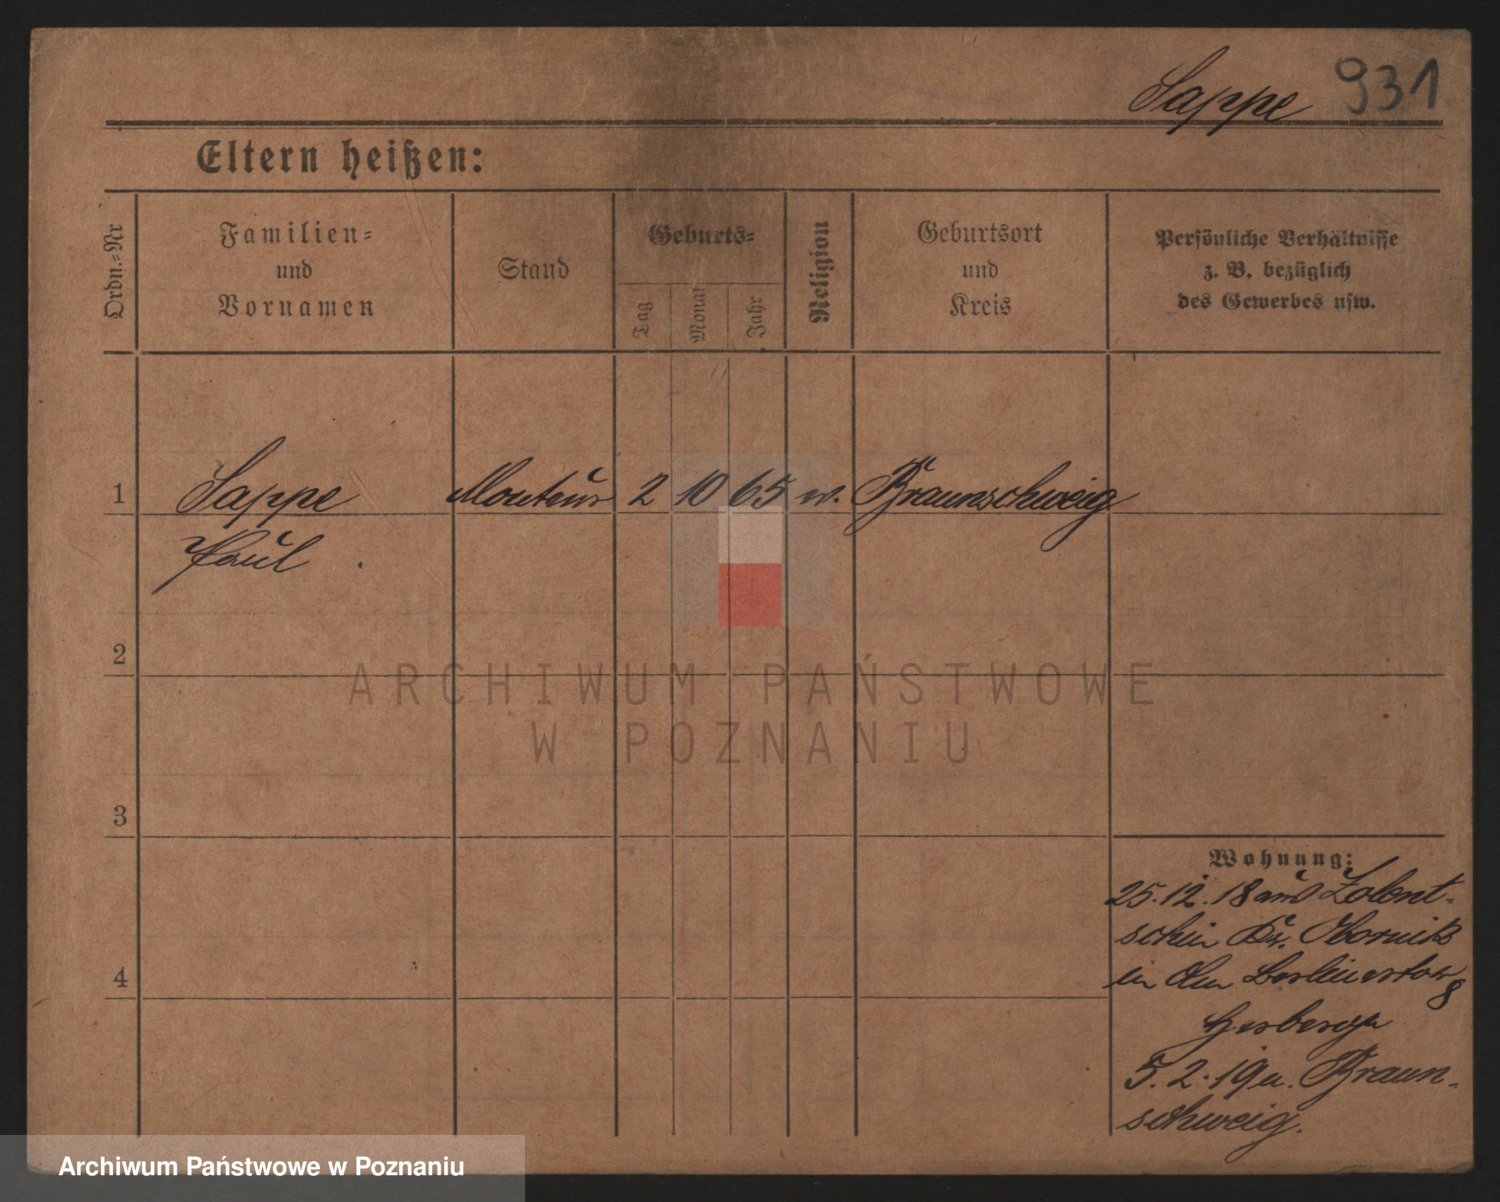 Sappe 931
Eltern heißen:
Ordn.-Nr
Familien-
und
Vornamen
Stand
Geburts-
Tag
Monat
Jahr
Religion
Geburtsort
und
Kreis
Persönliche Verhältnisse
z. B. bezüglich
des Gewerbes usw.
1 Sappe Monteur 2 10 65 ev. Braunschweig
Paul
2
ARCHIWUM PAŃSTWOWE
W POZNANIU
3
Wohnung:
25.12.18 aus Zolent-
schin Kr. Obornik
4
in Berlinertor 8
Herberge
5.2.19 n. Braun-
schweig.
Archiwum Państwowe w Poznaniu